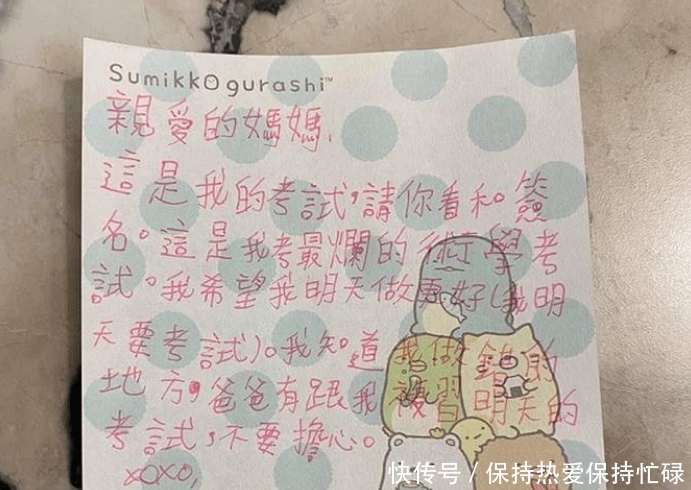 Sumikkogurashi™
親愛的媽媽,
這是我的考試,請你看和。簽
名。這是我考最爛的術學考
試。我希望我明天做更好(我明
天要考試)。我知。道我做錯的
地方,爸爸有跟我複習明天的
考試,不要擔心。
XOXO,
快传号/保持热爱保持忙碌